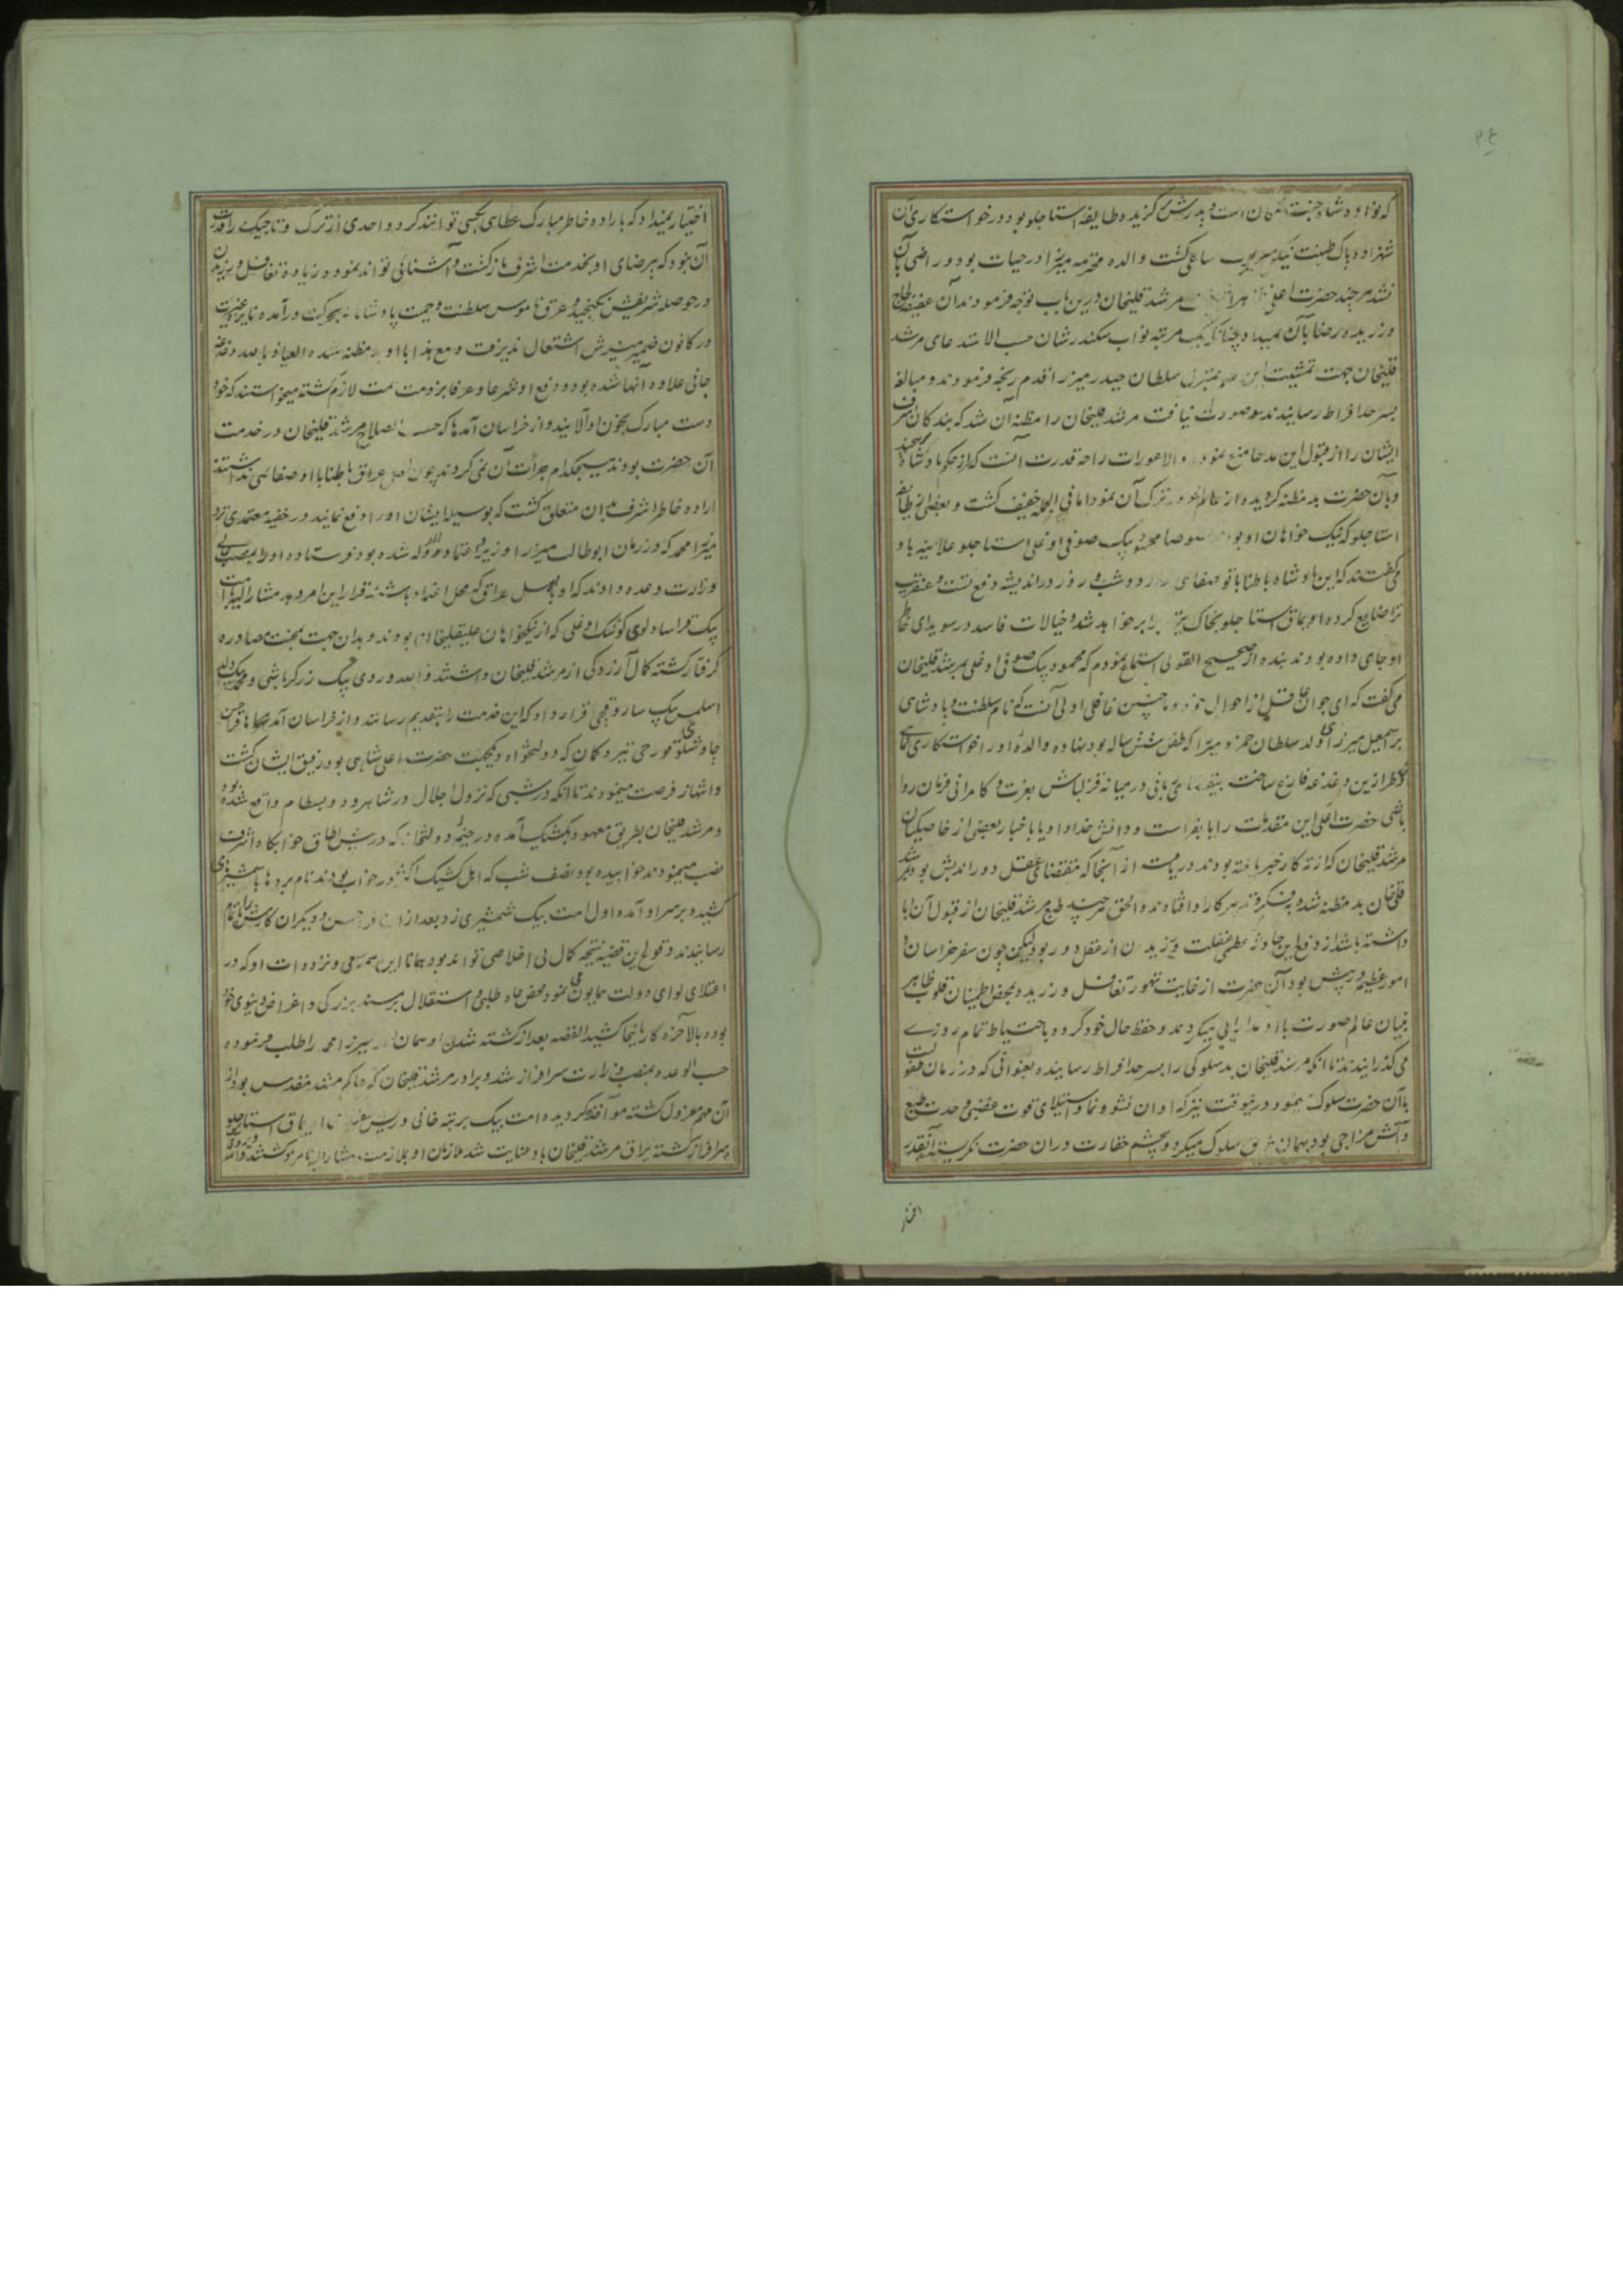 که نواده شاه جنت مکان است و پدرش برگزیده طایفه استاجلو بود در خواستکاری آن
شهزاده پاک طینت نیکو سیر ساعی گشت والده محترمه میرزا در حیات بود و راضی بآن
نشد هر چند حضرت اعلی مرشد قلیخان درین باب توجه فرمودند آن عفیفه لجاج
ورزیده رضا بآن نمیداد چنانکه یک مرتبه نواب سکندر شان حسب الاستدعای مرشد
قلیخان جهت تمشیت این بمنزل سلطان حیدر میرزا قدم رنجه فرمودند و مبالغه
بسرحد افراط رسانیدند و صورت نیافت مرشد قلیخان را مظنه آن شد که بندکان اشرف
ایشان را از قبول این مدعا منع نموده والا عورات را چه قدرت آنست که از حکم پادشاه
و بآن حضرت بد مظنه کردیده از ترک آن نمود اما فی الجمله خفیف گشت و بعضی از طایفه
استاجلو که نیک خواهان او بودند خصوصا محمود بیک صوفی اوغلی استاجلو علانیه باو
می گفتند که این پادشاه باطنا با تو صفای ندارد و شب و روز در اندیشه دفع تست و عنقریب
ترا ضایع کرده اویماق استاجلو بخاک تیره برابر خواهد شد و خیالات فاسد در سویدای خاطر
او جای داده بودند بنده از صحیح القولی استماع نمودم که محمود بیک صوفی اوغلی بمرشد قلیخان
می گفت که ای جوان غافل از احوال خود و چنین غافلی اولی آنست که نام سلطنت و پادشاهی
بر اسمعیل میرزای ولد سلطان حمزه میرزا که طفل شش ساله بود نهاده والده او را خواستکاری نمائی
خاطر ازین دغدغه فارغ ساخت بقیه در میانه قزلباش بعزت و کامرانی فرمان روا
باشی حضرت اعلی این مقدمات را یا بفراست و دانش خداداد یا باخبار بعضی از خاصیکیان
مرشد قلیخان که از ته کار خبر یافته بودند دریافت از آنجا که مقتضای عقل دوراندیش بود مرشد
قلیخان بد مظنه شده بفکر کار او افتادند والحق هر چند طبع مرشد قلیخان از قبول آن ابا
داشته باشد از وقوع این حادثه عظمی غفلت ورزیدن از عقل دور بود لیکن چون سفر خراسان و
امور عظیمه در پیش بود آن حضرت از غایت تهور تغافل ورزیده بمحض اطمینان قلوب ظاهر
بینان عالم صورت با او مدارایی میکردند و حفظ حال خود کرده باحتیاط تمام روزے
می گذرانیدند تا آنکه مرشد قلیخان بد سلوکی را بسرحد افراط رسانیده بعنوانی که در زمان طفولیت
با آن حضرت سلوک نموده درینوقت نیز که اوان نشو و نما و استیلای قوت غضبی و حدت طبع
و آتش مزاجی بود بهمان طریق سلوک میکرد و بچشم حقارت در آن حضرت نکریسته آنقدر
اختیار
اختیار نمیداد که باراده خاطر مبارک عطای بکسی توانند کرد و احدی از ترک و تاجیک را قدرت
آن نبود که بیرضای او بخدمت اشرف بازگشت و آشنائی تواند نمود و زیاده تغافل ورزیدن
در حوصله شریفش نکنجید و عرق ناموس سلطنت و حمیت پادشاهانه بحرکت درآمده نایره غیرت
در کانون ضمیر منیرش اشتعال پذیرفت و مع هذا با او مظنه شده العیاذ بالله دغدغه
جانی علاوه آنها شده بود و دفع او شرعا و عرفا بر ذمت همت لازم گشته میخواستند که خود
دست مبارک بخون او آلایند و از خراسان آمدها که حسب الصلاح مرشد قلیخان در خدمت
آن حضرت بودند هیچکدام جرأت آن نمی کردند چون اهل عراق باطنا با او صفائی نداشتند
اراده خاطر اشرف بدان متعلق گشت که بوسیله ایشان او را دفع نمایند در خفیه معتمدی نزد
میرزا محمد که در زمان ابوطالب میرزا وزیر و اعتماد الدوله شده بود فرستاده او را بمنصب عالی
وزارت وعده دادند که او بهر اهل عراق که محل اعتماد باشد قرار این امر دهد مشارالیه با امت
بیک قراسارلوی کوشک اوغلی که از نیکخواهان علیقلیخان بودند و بدان جهت بمحنت مصادره
گرفتار گشته کمال آزردگی از مرشد قلیخان داشتند و الله وردی بیک زرگر باشی و محمد بیک
اسلمس بیک ساروقچی قرار داد که این خدمت را بتقدیم رسانند و از خراسان آمدها قراحسن
چاوشلوی قورچی تیر و کمان که دولتخواه و یکجهت حضرت اعلی شاهی بود رفیق ایشان گشت
و انتهاز فرصت مینمودند تا آنکه در شبی که نزول اجلال در شاهرود و بسطام واقع شده بود
و مرشد قلیخان بطریق معهود بکشیک آمده در خیمه دولتخانه که در پیش اطاق خوابگاه اشرف
نصب مینمودند خوابیده بود نصف شب که اهل کشیک اکثر در خواب بودند نام برده ها با شمشیرهای
کشیده بر سر او آمده اول امت بیک شمشیری زد بعد از آن قراحسن و دیگران کارش را تمام
رسانیدند وقوع این قضیه نتیجه کمال بی اخلاصی تواند بود همانا این همه سعی و تردوات او که در
اعتلای لوای دولت همایون می نمود محض جاه طلبی و استقلال بر مسند بزرگی و اغراض دنیوی خود
بوده بالآخره کار باینجا کشید القصه بعد از کشته شدن او همان میرزا محمد را طلب فرموده
حسب الوعده بمنصب وزارت سرافراز شد و برادر مرشد قلیخان که حاکم مشهد مقدس بود از
آن مهم معزول گشته مواخذ کردیده امت بیک برتبه خانی و ریش سفیدی اویماق استاجلو
سرافراز گشته یراق مرشد قلیخان باو عنایت شد ملازمان او بملازمت مشارالیه مامور گشتند والله